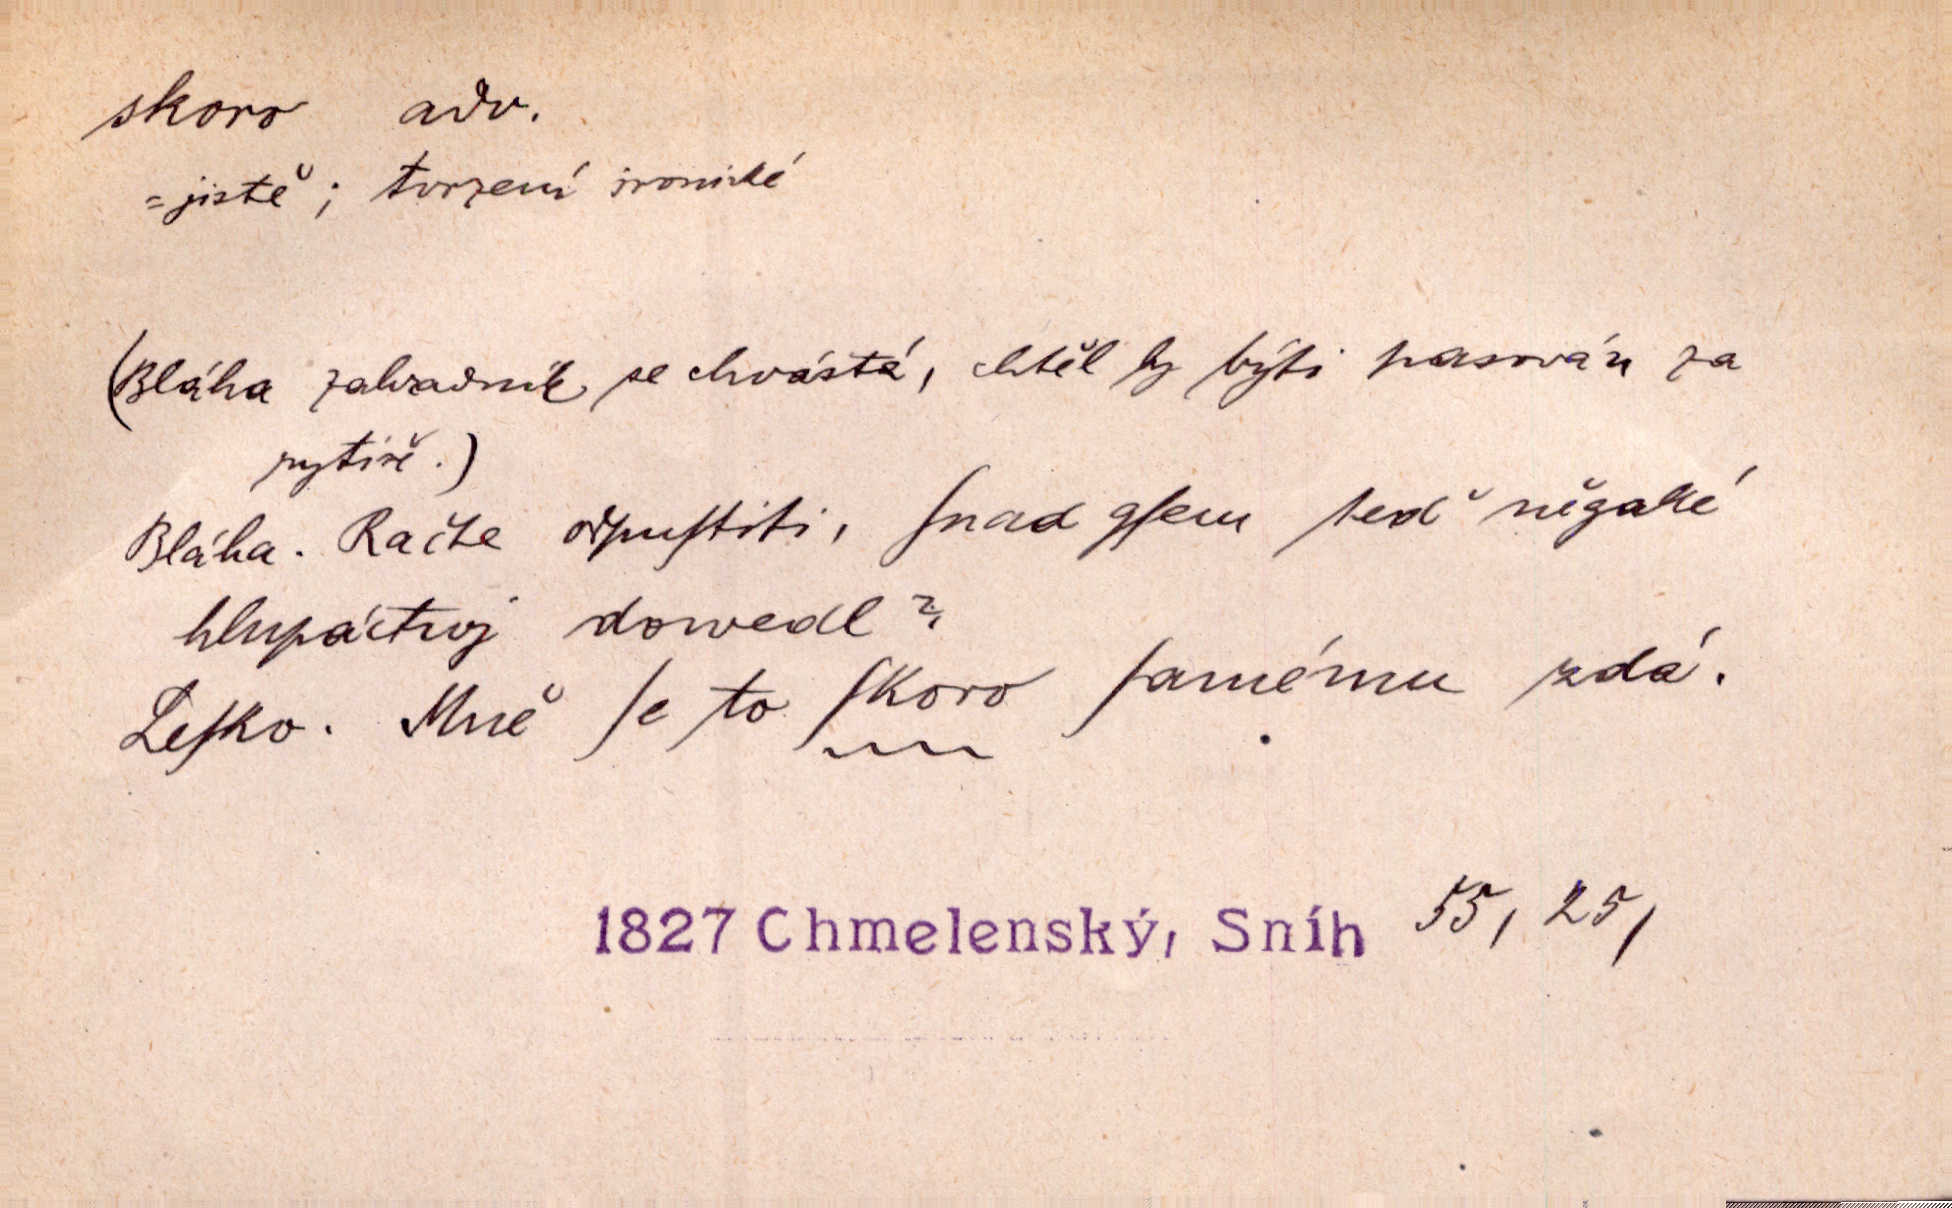 skoro adv.
= jistě; tvrzení ironické
(Bláha zahradník se chvástá, chtěl by býti pasován za
rytíře.)
Bláha. Račte odpuſtiti, ſnad gſem teď něgaké
hlupáctwj dowedl?
Leſko. Mně ſe to ſkoro ſamému zdá.
1827 Chmelenský, Sníh 55, 25,